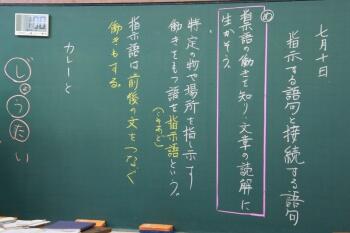 七月十日
指示する語句と接続する語句
め
指示語の働きを知り、文章の読解に
生かそう。
特定の物や場所を指し示す
働きをもつ語を指示語という。
(こそあど)
指示語は前後の文をつなぐ
働きもする。
カレーと
じょうたい